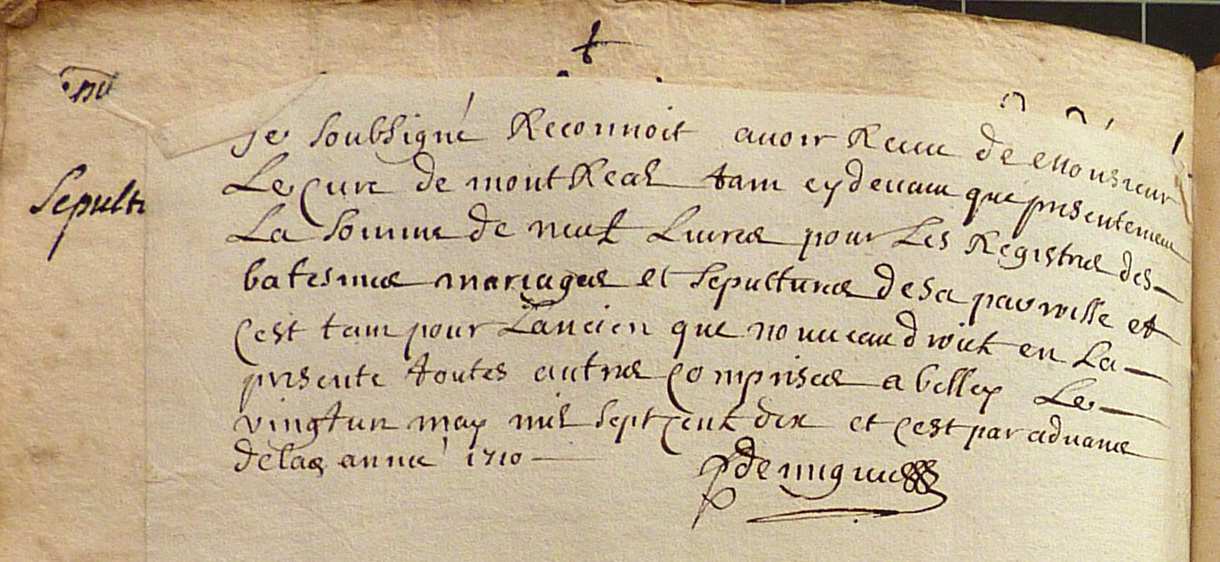 Sepultr
Je soubsigné Reconnoit avoir Receu de Monsieur
Le Curé de montReal tam cy devam que presentemem
La somme de neuf Livres pour Les Registres des
batesmes mariages et sepultures de sa parroisse et
cest tam pour Lancien que nouveau droict en La
presente toutes autres comprises a belley Le
vingtun may mil sept cent dix et cest par advance
delad annee 1710